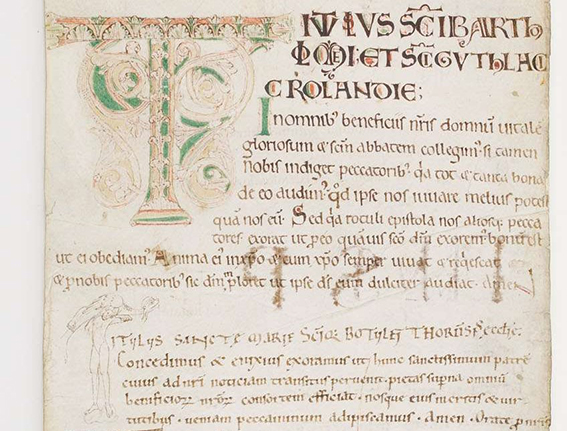 TITVLVS SC̄I BARTH
OLOMEI: ET SC̄I GVTHLAC
CROILANDIE;
In omnib' beneficiis nr̄is domnū uitalē
gloriosum & sc̄m abbatem collegim'. si tamen
nobis indiget peccatorib' qa tot & tanta bona
de eo audiuim'. qd ipse nos iuuare melius potest
quā nos eū. Sed qa rotuli epistola nos aliosq; pecca
tores exorat ut p eo quāuis sc̄o dm̄ exorem' bonū est
ut ei obediam'. Anima ei' in xpo & cum xpo semper uiuat & requiescat
& p nobis peccatorib' sic dm̄ ploret ut ipse ds eum dulciter audiat. Amen
TITVLVS SANCTE MARIE SCIQ; BOTVLFI THORN ecclie.
Concedimus & enixius exoramus ut hunc sanctissimum patrē
cuius ad nr̄i noticiam transitus peruenit. pietas supna omniū
beneficiorū nr̄orū consortem efficiat. nosque eius meritis & uir
tutibus. ueniam peccaminum adipiscamus. Amen. Orate p nr̄is